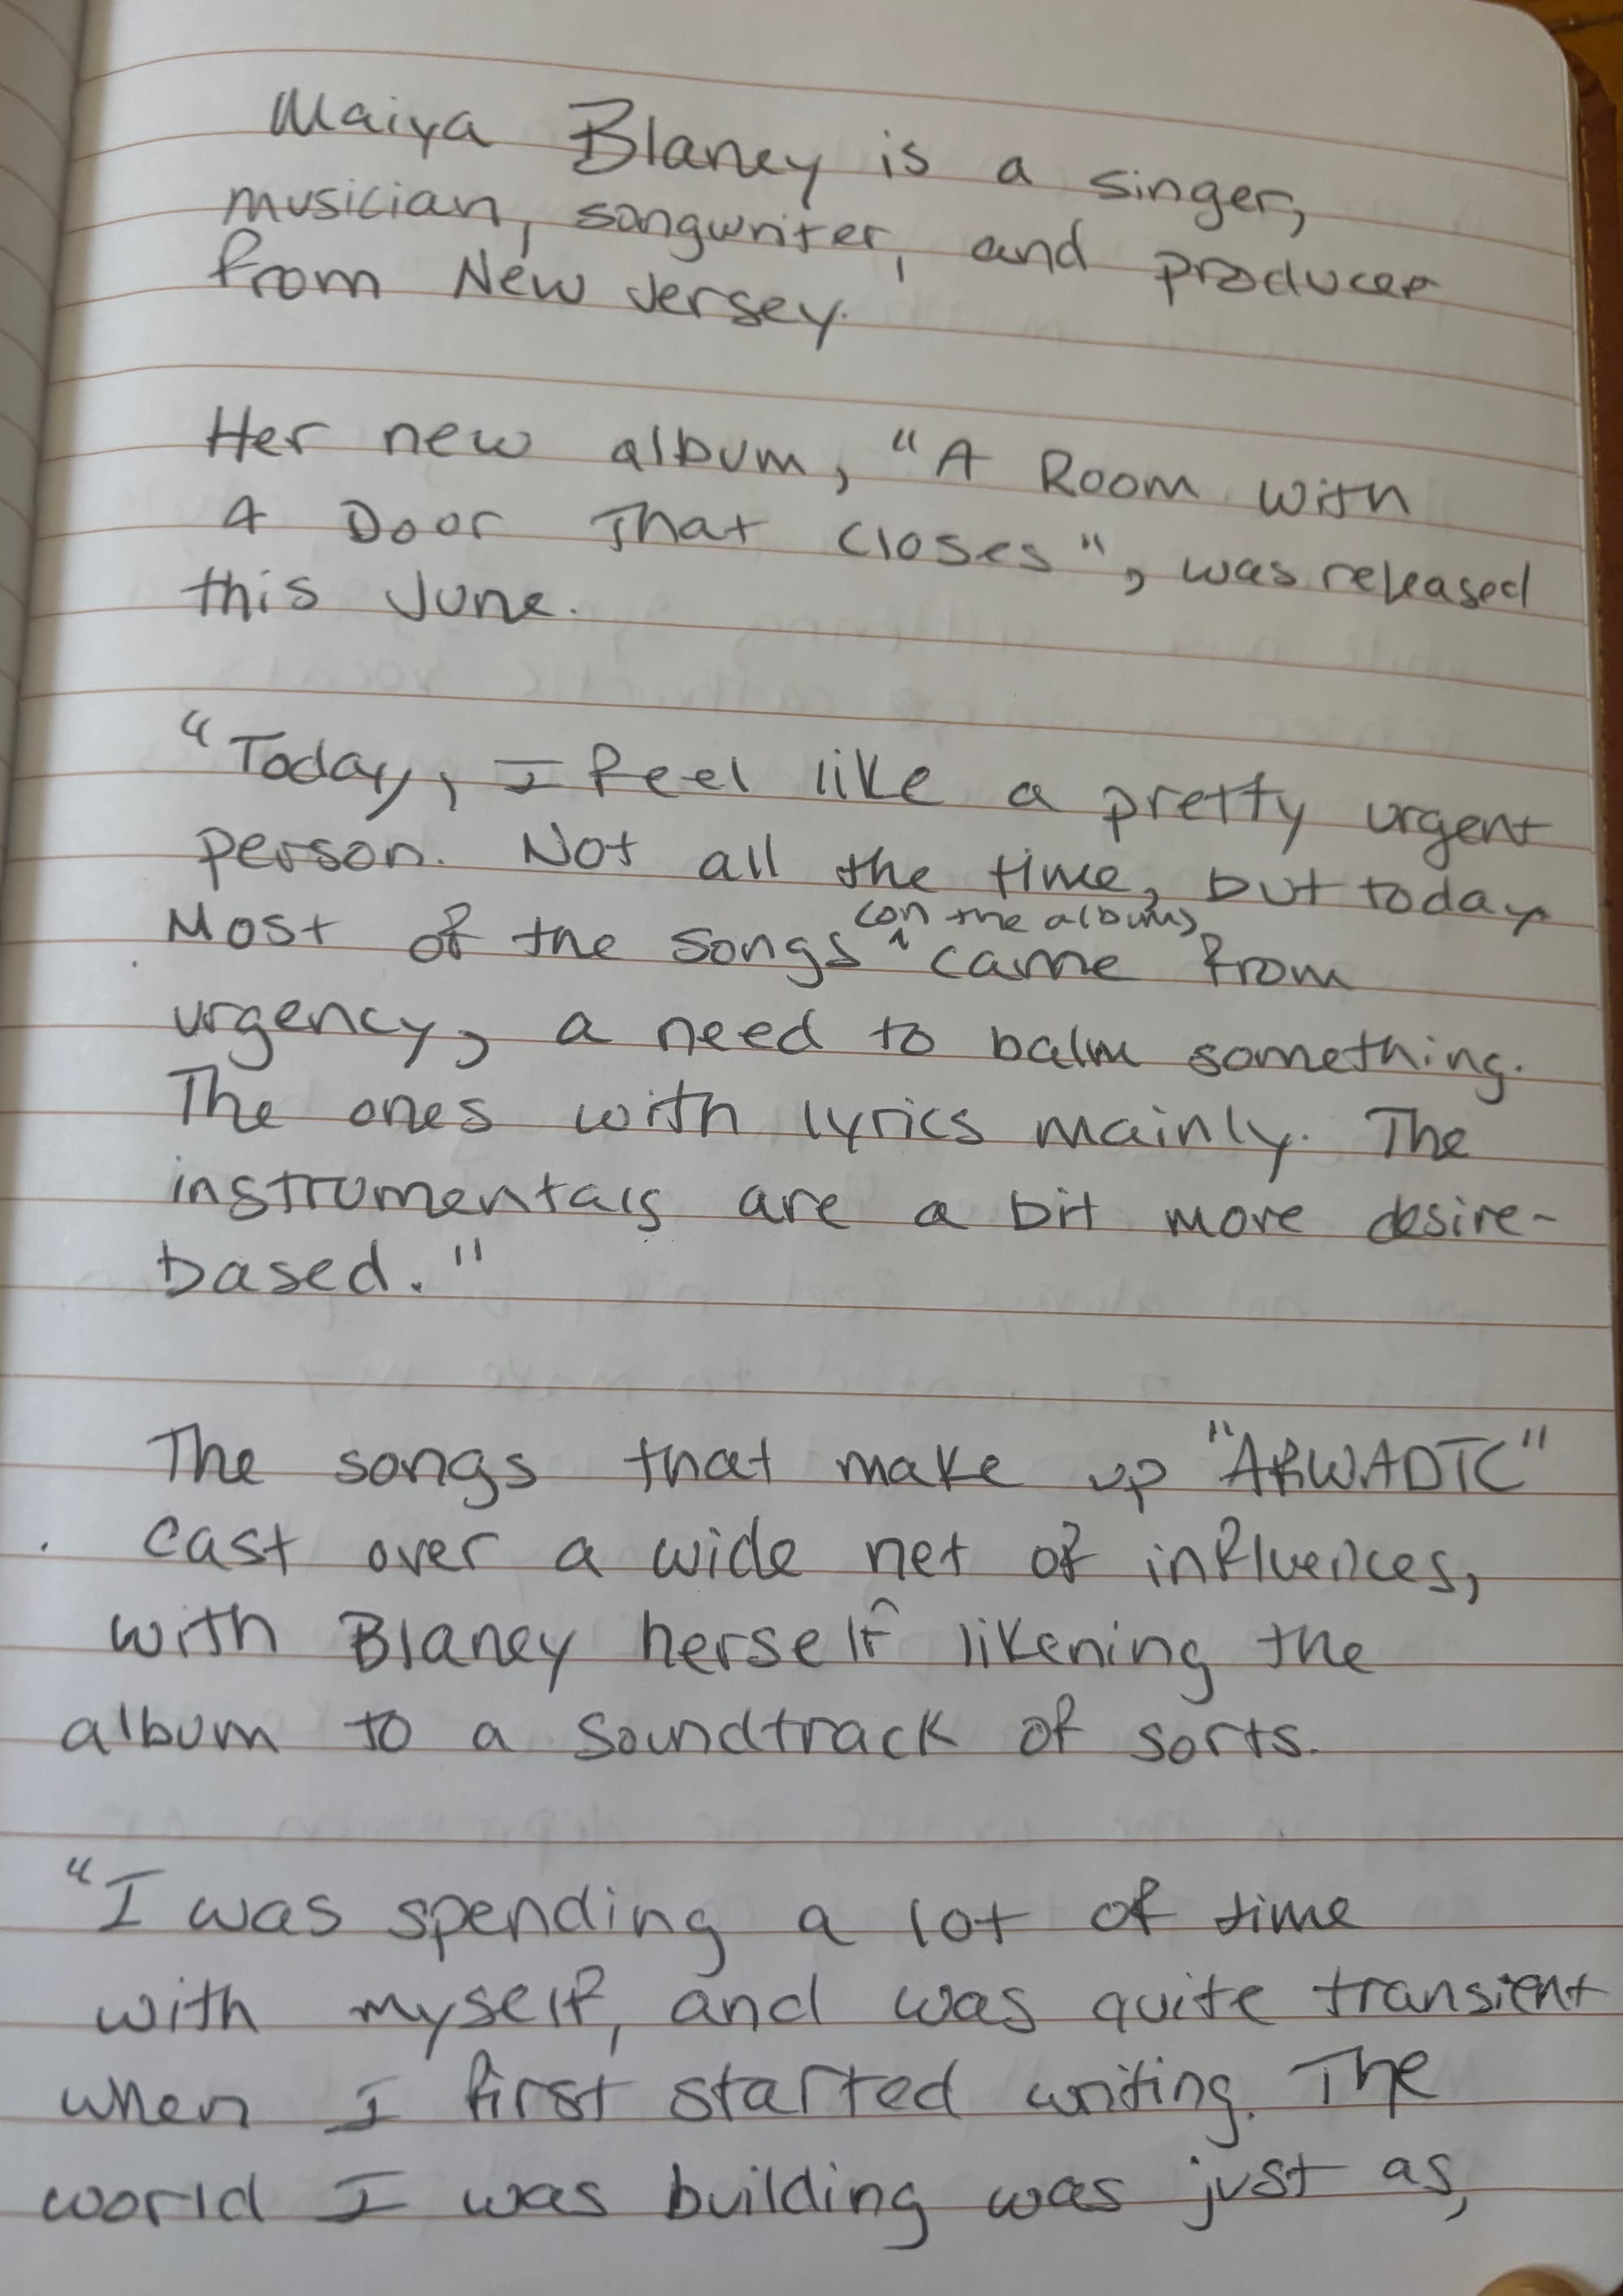 Maiya Blaney is a singer,
musician, songwriter, and producer
from New Jersey.
Her new album, "A Room with
A Door That Closes", was released
this June.
"Today, I feel like a pretty urgent
person. Not all the time, but today
(on the album)
Most of the songs ^ came from
urgency, a need to balm something.
The ones with lyrics mainly. The
instrumentals are a bit more desire-
based."
The songs that make up "ARWADTC"
cast over a wide net of influences,
with Blaney herself likening the
album to a soundtrack of sorts.
"I was spending a lot of time
with myself, and was quite transient
when I first started writing. The
world I was building was just as,